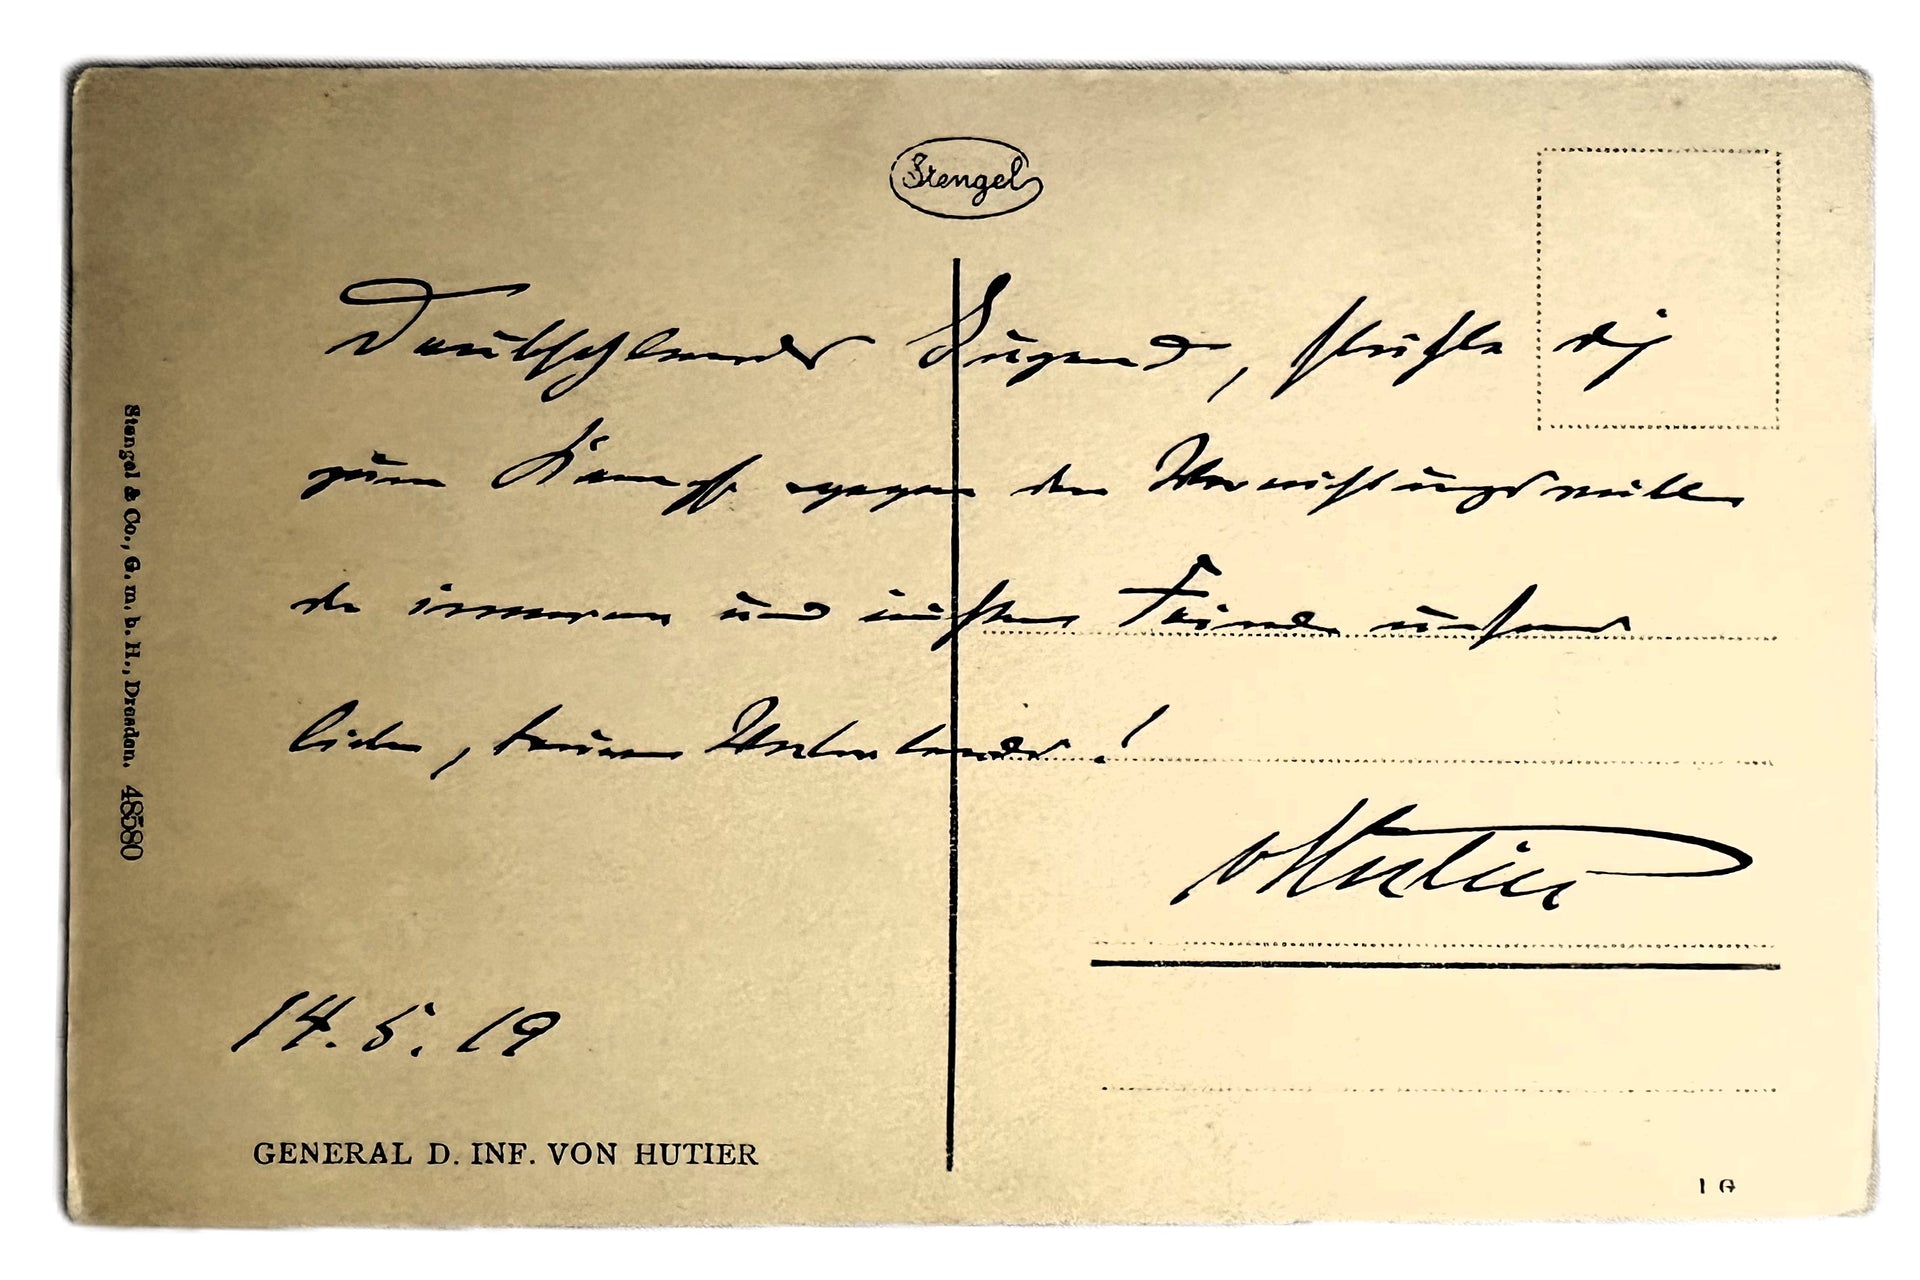 Stengel
Deutschlands Jugend, stähle dich
zum Kampf gegen den Vernichtungswillen
der inneren und äußeren Feinde unseres
lieben, teuren Vaterlandes!
vHutier
14. 5. 19
GENERAL D. INF. VON HUTIER
Stengel & Co., G. m. b. H., Dresden. 48580